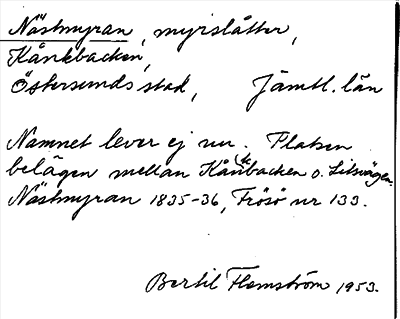 Nästmyran, myrslåtter,
Kånkbacken,
Östersunds stad, Jämtl. län
Namnet lever ej nu. Platsen
belägen mellan Kånkbacken o. Litsvägen.
Nästmyran 1835-36, Frösö nr 133.
Bertil Flemström 1953.